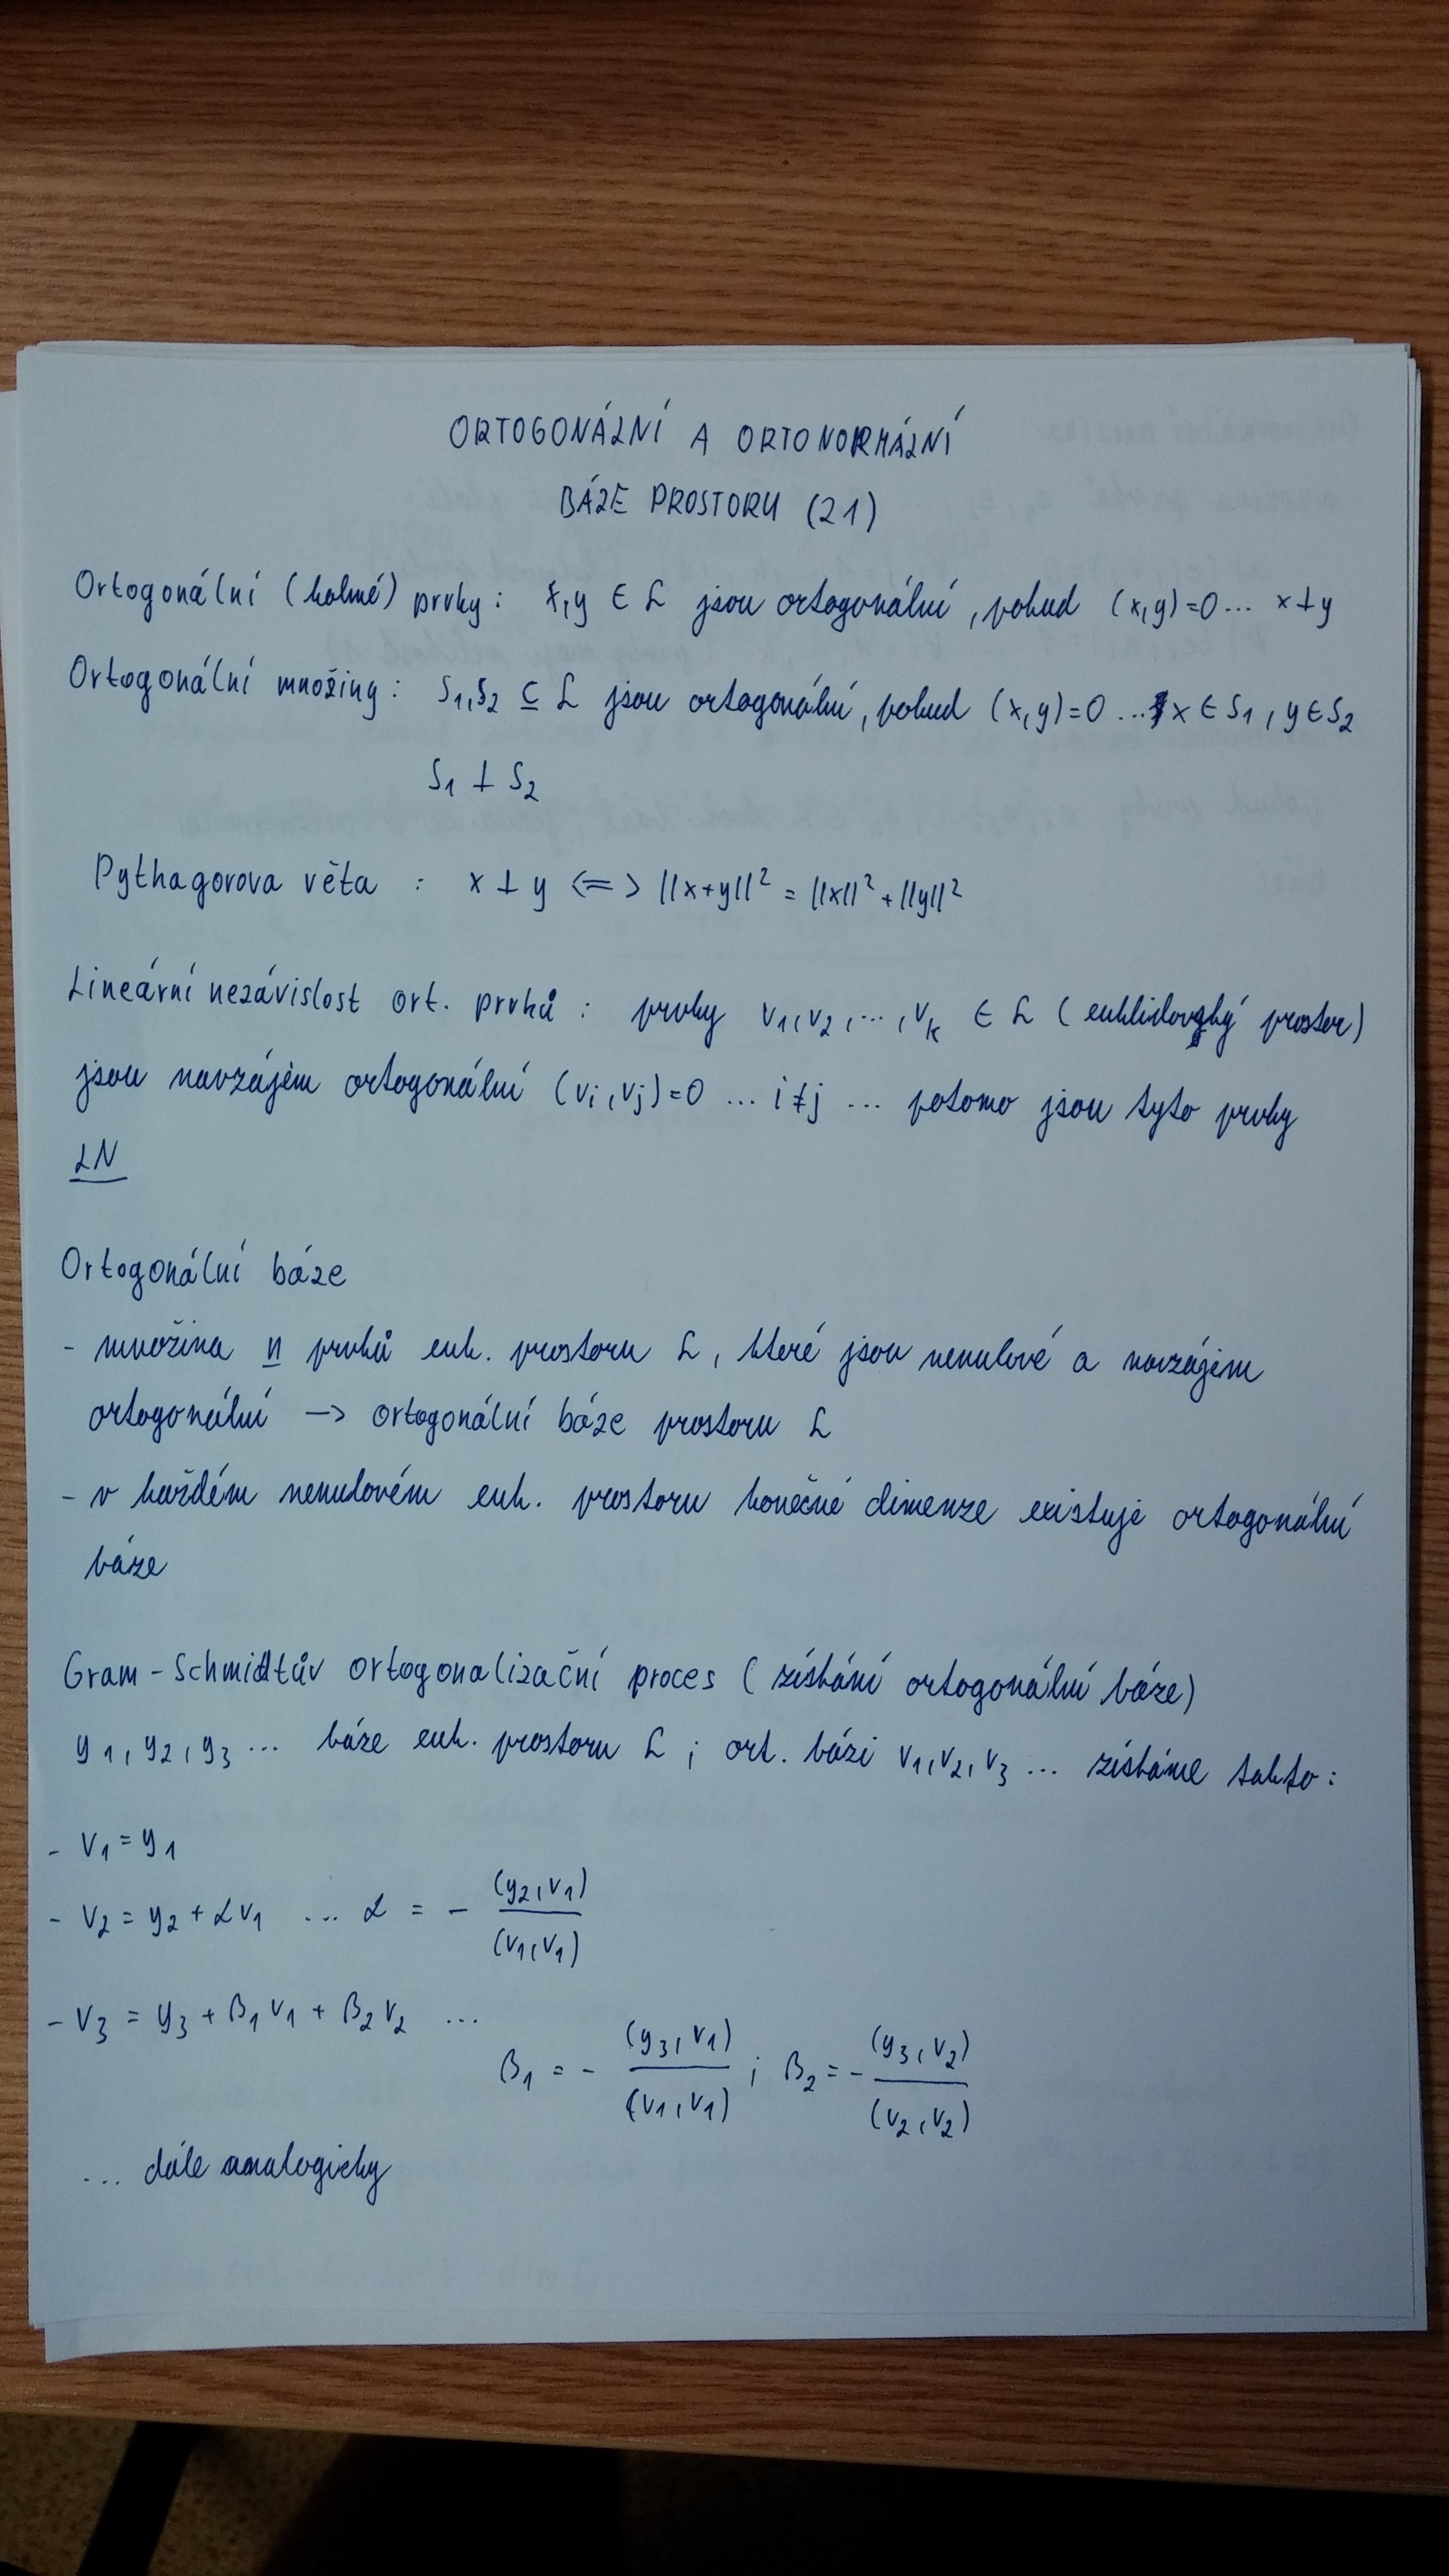 ORTOGONÁLNÍ A ORTONORMÁLNÍ
BÁZE PROSTORU (21)
Ortogonální (kolmé) prvky: x,y ∈ L jsou ortogonální, pokud (x,y)=0 ... x⊥y
Ortogonální množiny: S₁,S₂ ⊆ L jsou ortogonální, pokud (x,y)=0 ... x ∈ S₁, y ∈ S₂
S₁ ⊥ S₂
Pythagorova věta : x ⊥ y <=> ||x+y||² = ||x||² + ||y||²
Lineární nezávislost ort. prvků : prvky v₁,v₂,...,vₖ ∈ L (euklidovský prostor)
jsou navzájem ortogonální (vᵢ,vⱼ)=0 ... i≠j ... potomo jsou tyto prvky
LN
Ortogonální báze
- množina n prvků euk. prostoru L, které jsou nenulové a navzájem
ortogonální -> ortogonální báze prostoru L
- v každém nenulovém euk. prostoru konečné dimenze existuje ortogonální
báze
Gram-Schmidtův ortogonalizační proces (získání ortogonální báze)
y₁,y₂,y₃ ... báze euk. prostoru L ; ort. bázi v₁,v₂,v₃ ... získáme takto:
- v₁ = y₁
- v₂ = y₂ + αv₁ ... α = - (y₂,v₁) / (v₁,v₁)
- v₃ = y₃ + β₁v₁ + β₂v₂ ...
β₁ = - (y₃,v₁) / (v₁,v₁) ; β₂ = - (y₃,v₂) / (v₂,v₂)
... dále analogicky